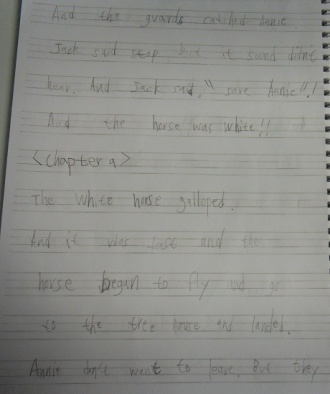 And the guards catched Annie.
Jack said stop, but it sound didn't
hear. And Jack said, "save Annie"!!
And the horse was white!!
<Chapter 9>
The White horse galloped.
And it was fast and the
horse begun to fly and go
to the tree house and landed.
Annie don't want to leave. But they